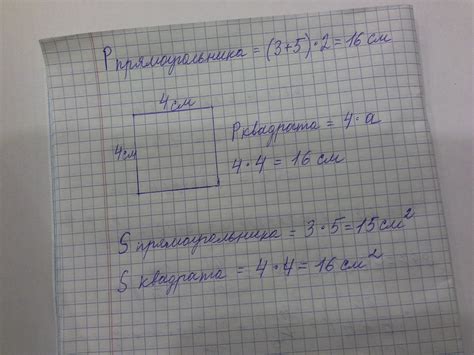 P прямоугольника = (3+5)·2=16 см
4 см
4 см
P квадрата = 4·а
4·4=16 см
S прямоугольника = 3·5=15 см²
S квадрата = 4·4=16 см²